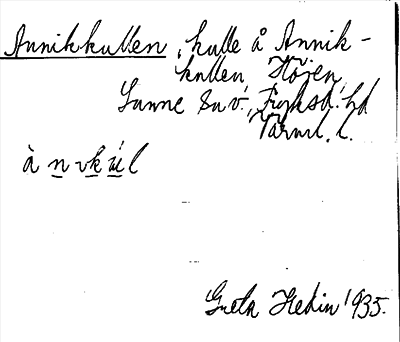 Annikkullen, kulle å Annik-
kullen, Höjen,
Sunne sn v., Fryksd. hd
Värml. l.
à n v k ú l
Greta Hedin 1935.